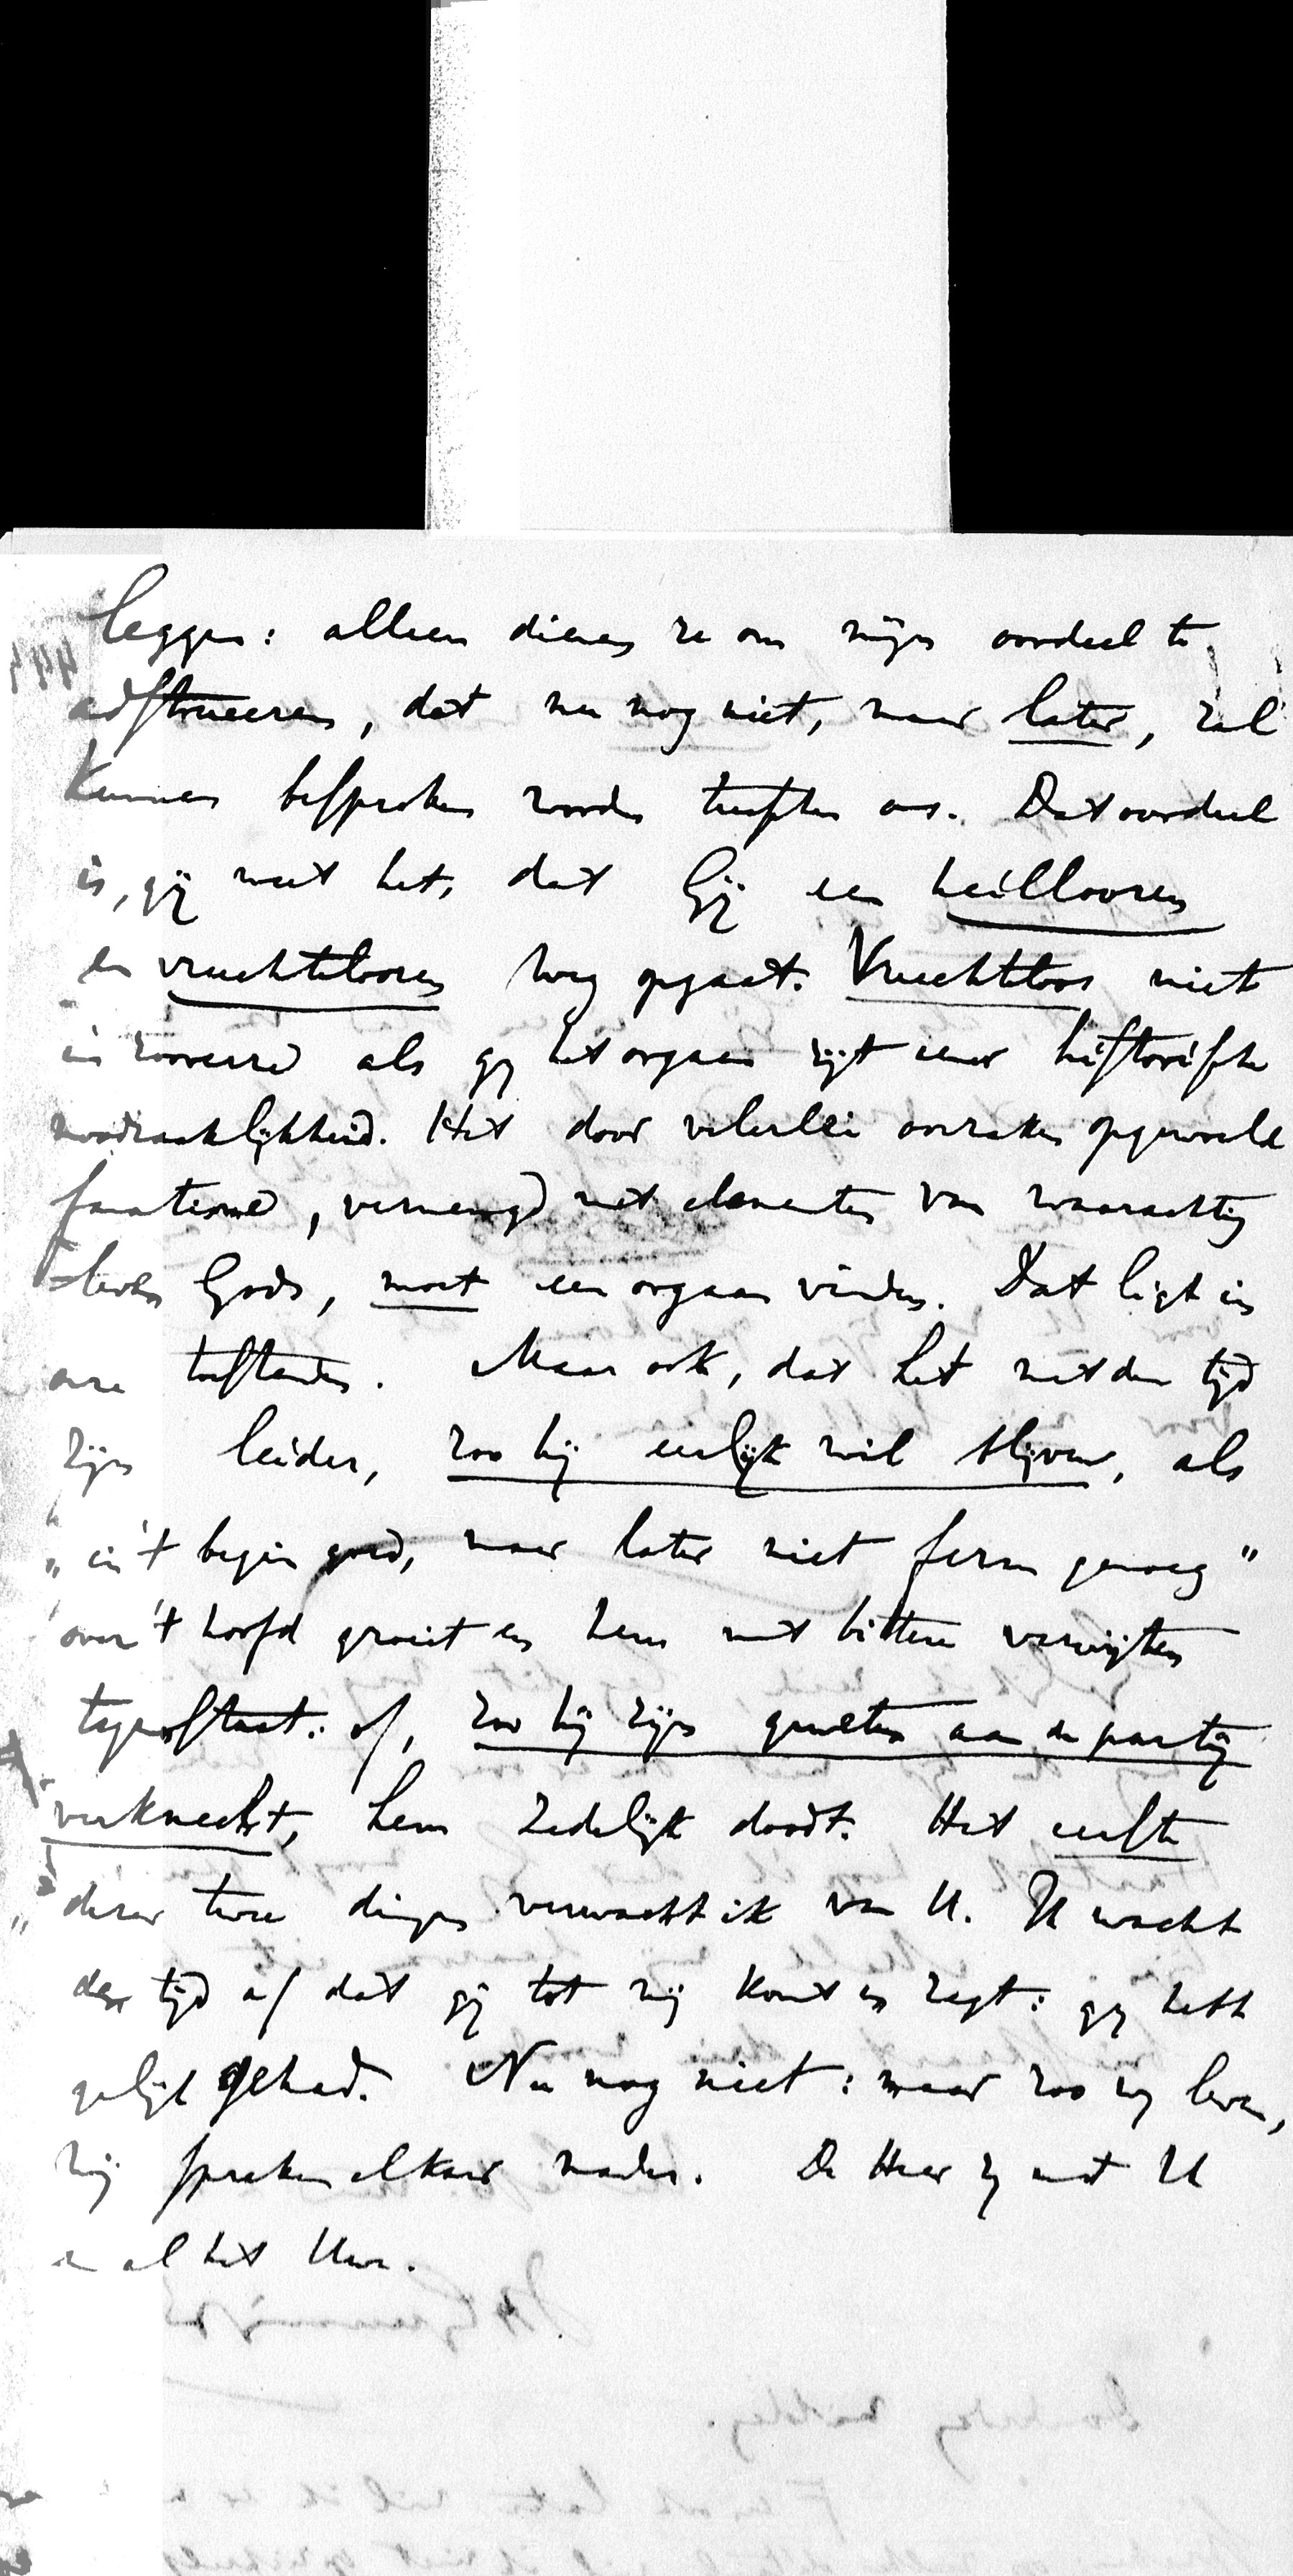 leggen: alleen dienen ze om mijn oordeel te
adstrueeren, dat nu nog niet, maar later, zal
kunnen besproken worden tusschen ons. Dat oordeel
is, gij weet het, dat Gij een heilloozen
en vruchteloozen weg opgaat. Vruchteloos niet
in zooverre als gij het orgaan zijt eener historische
noodzaaklijkheid. Het door velerlei oorzaken opgewekte
fanatisme, vermengd met elementen van waarachtig
leven Gods, moet een orgaan vinden. Dat ligt in
onze toestanden. Maar ook, dat het met den tijd
zijn leider, zoo hij eerlijk wil blijven, als
„in 't begin goed, maar later niet ferm genoeg"
over 't hoofd groeit en hem met bittere verwijten
tegenstaat: of, zoo hij zijn geweten aan de partij
verknecht, hem zedelijk doodt. Het eerste
dezer twee dingen verwacht ik van U. Ik wacht
den tijd af dat gij tot mij komt en zegt: gij hebt
gelijk gehad. Nu nog niet: maar zoo wij leven,
wij spreken elkaar nader. De Heer zij met U
en al het Uwe.